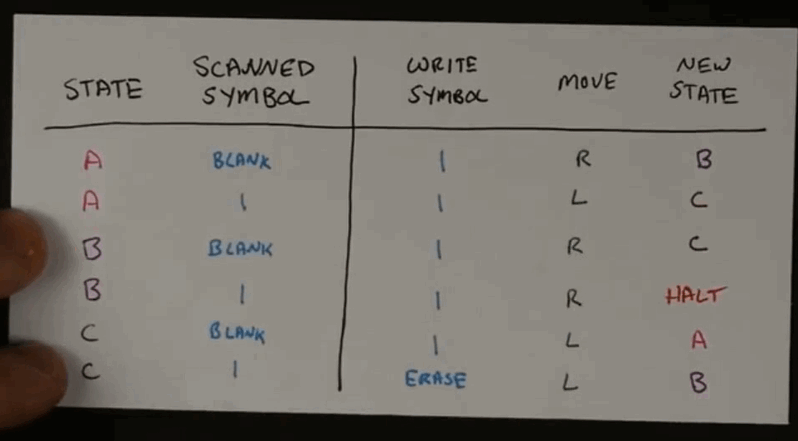 STATE SCANNED SYMBOL WRITE SYMBOL MOVE NEW STATE
A BLANK 1 R B
A 1 1 L C
B BLANK 1 R C
B 1 1 R HALT
C BLANK 1 L A
C 1 ERASE L B